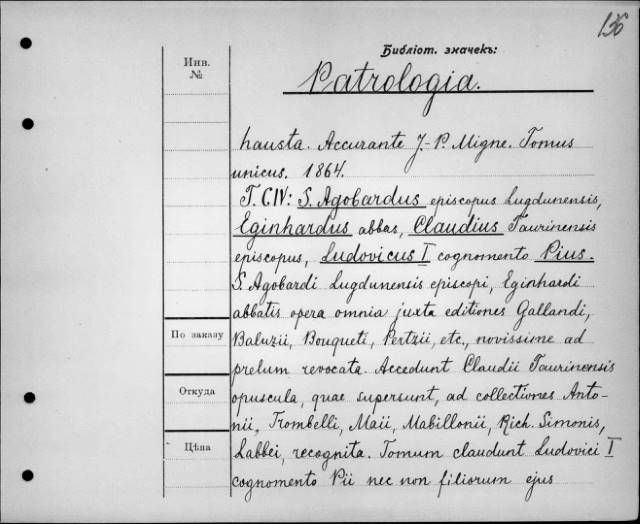 156
Библіот. значекъ:
Инв.
№
Patrologia.
hausta. Accurante J.-P. Migne. Tomus
unicus. 1864.
T. CIV: S. Agobardus episcopus Lugdunensis,
Eginhardus abbas, Claudius Taurinensis
episcopus, Ludovicus I cognomento Pius.
S. Agobardi Lugdunensis episcopi, Eginhardi
abbatis opera omnia juxta editiones Gallandi,
Baluzii, Bouqueti, Pertzii, etc., novissime ad
prelum revocata. Accedunt Claudii Taurinensis
opuscula, quae supersunt, ad collectiones Anto-
nii, Trombelli, Maii, Mabillonii, Rich. Simonis,
Labbei, recognita. Tomum claudunt Ludovici I
cognomento Pii nec non filiorum ejus
По заказу
Откуда
Цѣна